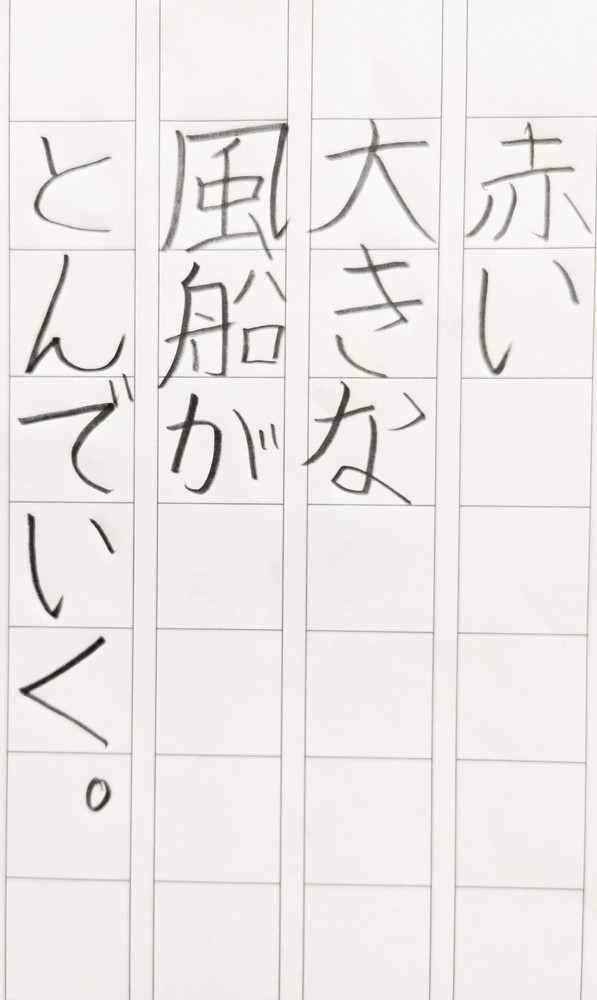 赤い
大きな
風船が
とんでいく。